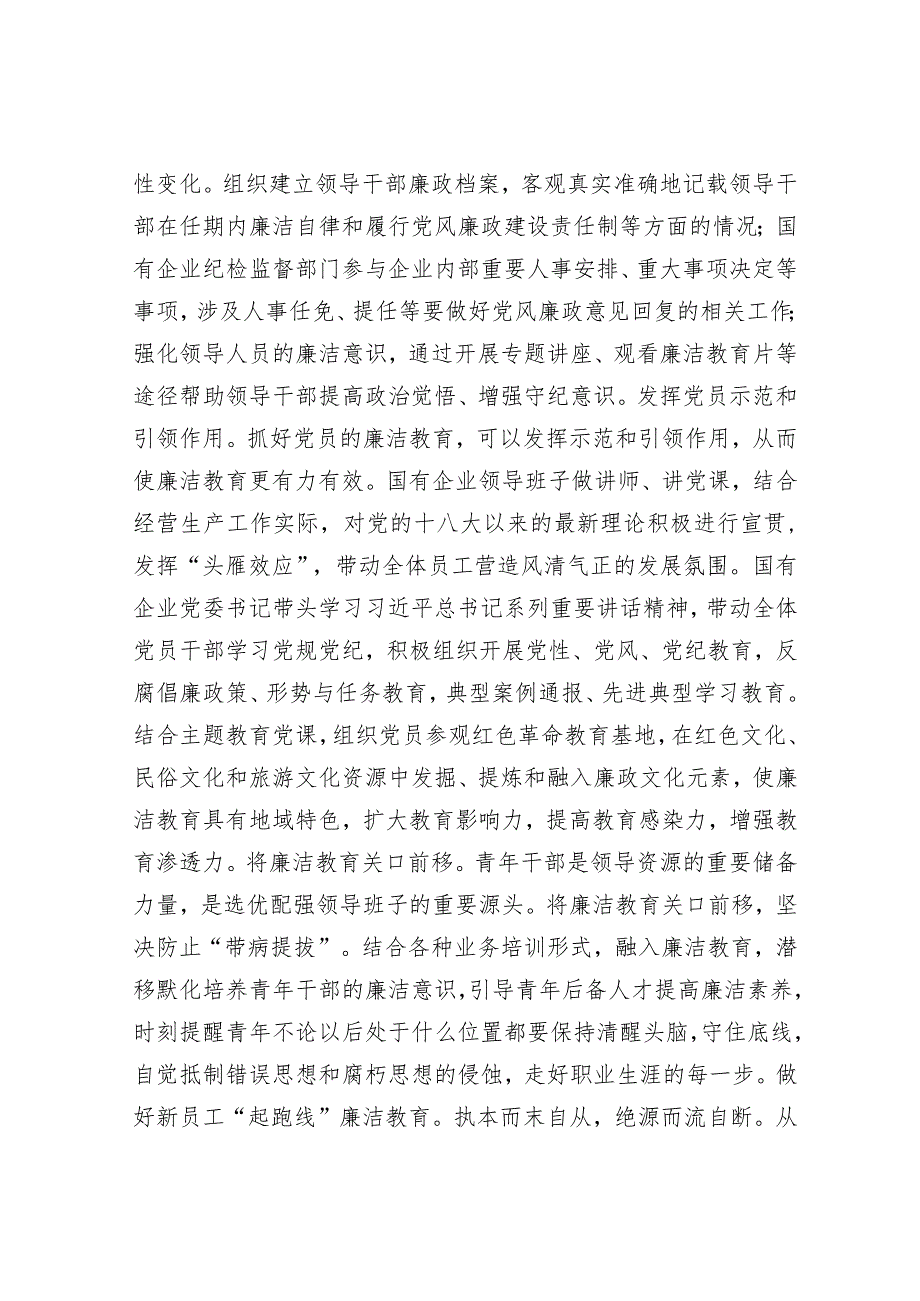 性变化。组织建立领导干部廉政档案，客观真实准确地记载领导干
部在任期内廉洁自律和履行党风廉政建设责任制等方面的情况；国
有企业纪检监督部门参与企业内部重要人事安排、重大事项决定等
事项，涉及人事任免、提任等要做好党风廉政意见回复的相关工作；
强化领导人员的廉洁意识，通过开展专题讲座、观看廉洁教育片等
途径帮助领导干部提高政治觉悟、增强守纪意识。发挥党员示范和
引领作用。抓好党员的廉洁教育，可以发挥示范和引领作用，从而
使廉洁教育更有力有效。国有企业领导班子做讲师、讲党课，结合
经营生产工作实际，对党的十八大以来的最新理论积极进行宣贯，
发挥“头雁效应”，带动全体员工营造风清气正的发展氛围。国有
企业党委书记带头学习习近平总书记系列重要讲话精神，带动全体
党员干部学习党规党纪，积极组织开展党性、党风、党纪教育，反
腐倡廉政策、形势与任务教育，典型案例通报、先进典型学习教育。
结合主题教育党课，组织党员参观红色革命教育基地，在红色文化、
民俗文化和旅游文化资源中发掘、提炼和融入廉政文化元素，使廉
洁教育具有地域特色，扩大教育影响力，提高教育感染力，增强教
育渗透力。将廉洁教育关口前移。青年干部是领导资源的重要储备
力量，是选优配强领导班子的重要源头。将廉洁教育关口前移，坚
决防止“带病提拔”。结合各种业务培训形式，融入廉洁教育，潜
移默化培养青年干部的廉洁意识，引导青年后备人才提高廉洁素养，
时刻提醒青年不论以后处于什么位置都要保持清醒头脑，守住底线，
自觉抵制错误思想和腐朽思想的侵蚀，走好职业生涯的每一步。做
好新员工“起跑线”廉洁教育。执本而末自从，绝源而流自断。从